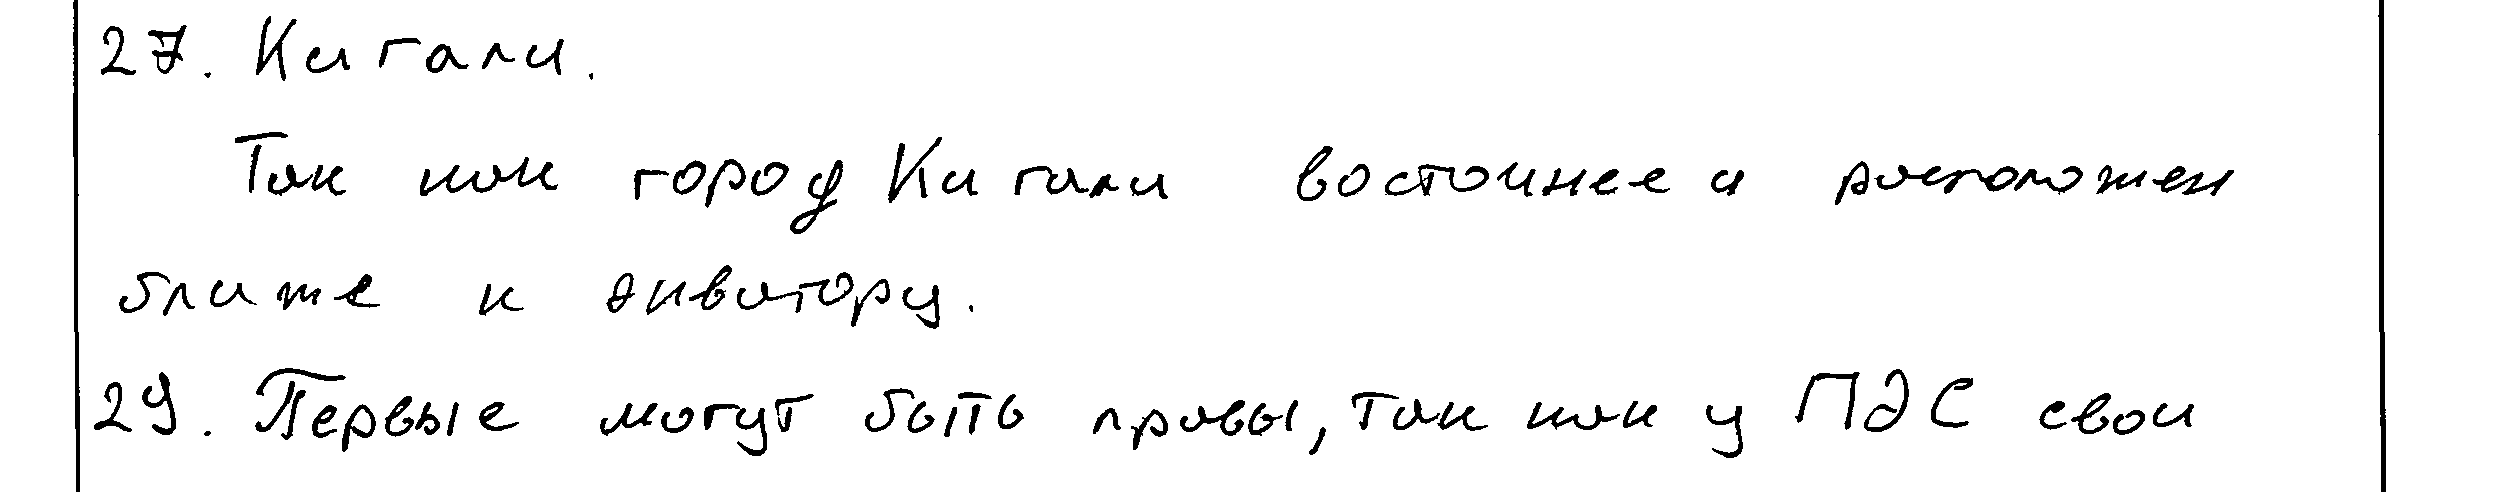 27. Кигали.
Так как город Кигали восточнее и расположен
ближе к экватору.
29. Первые могут быть правы, так как у ПЭС свои